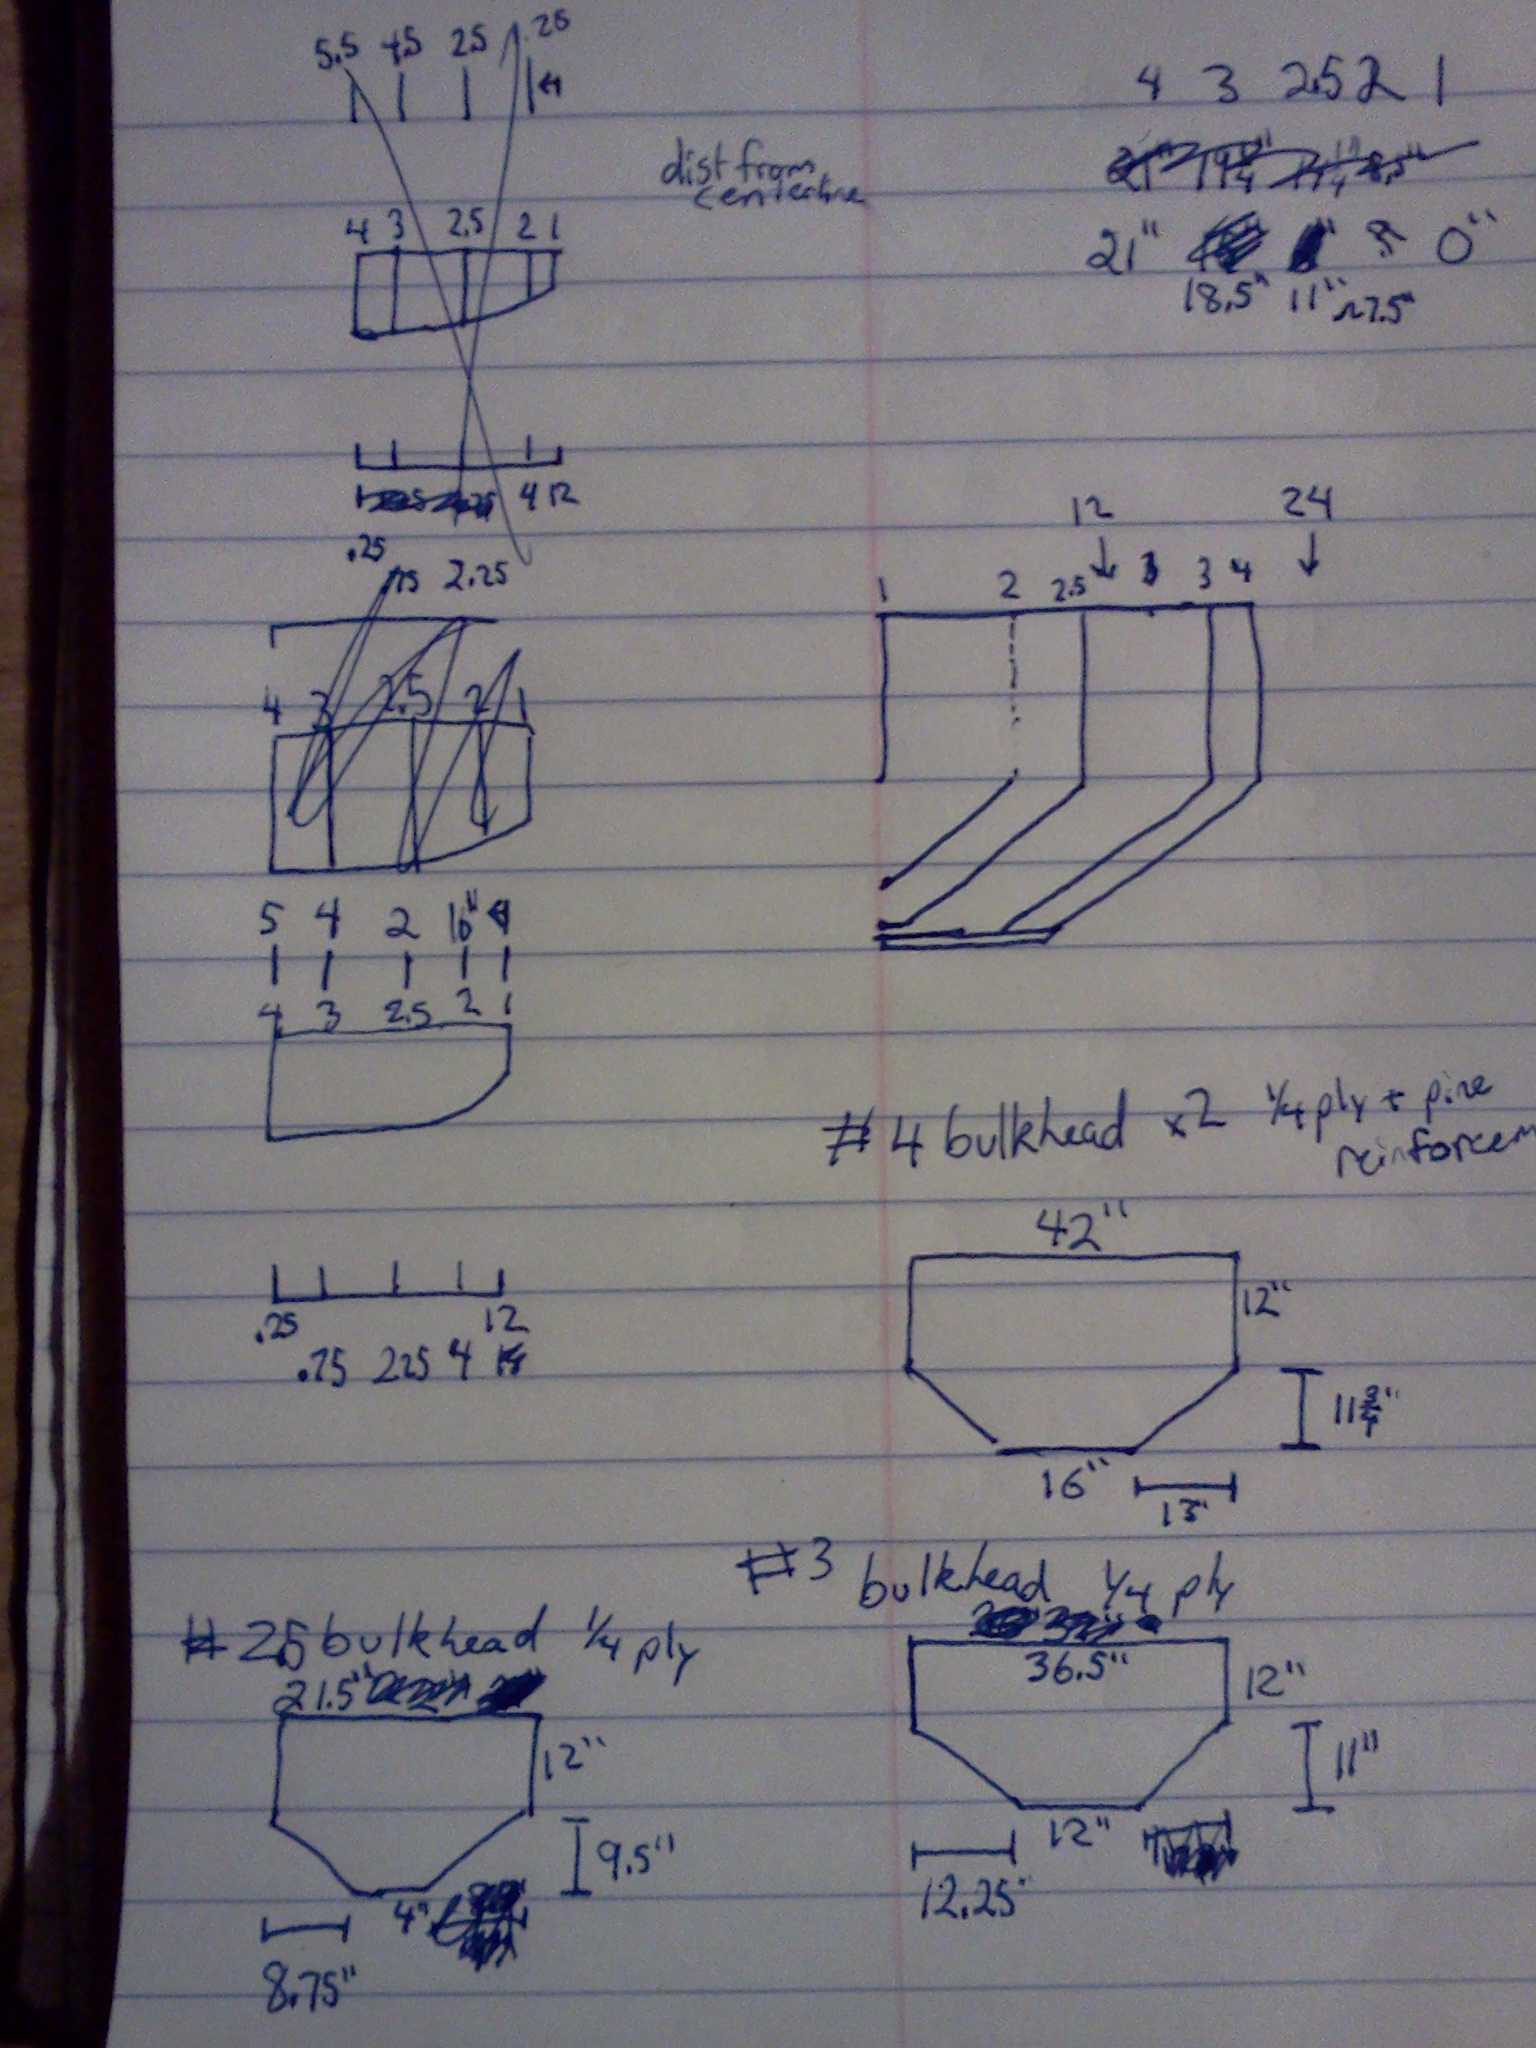 5.5 4.5 2.5 .25
4 3 2.5 2 1
dist from
centerline
21" 0"
18.5" 11" ~7.5"
4 3 2.5 2 1
4 12
.25
.75 2.25
12 24
1 2 2.5 3 3 4
4 3 2.5 2 1
5 4 2 16"
4 3 2.5 2 1
#4 bulkhead x2 1/4 ply + pine
reinforcem
42"
12"
.25 12
.75 2.25 4
11 3/4"
16"
13"
#3 bulkhead 1/4 ply
36.5"
12"
11"
12"
12.25"
#2.5 bulkhead 1/4 ply
21.5"
12"
9.5"
4"
8.75"